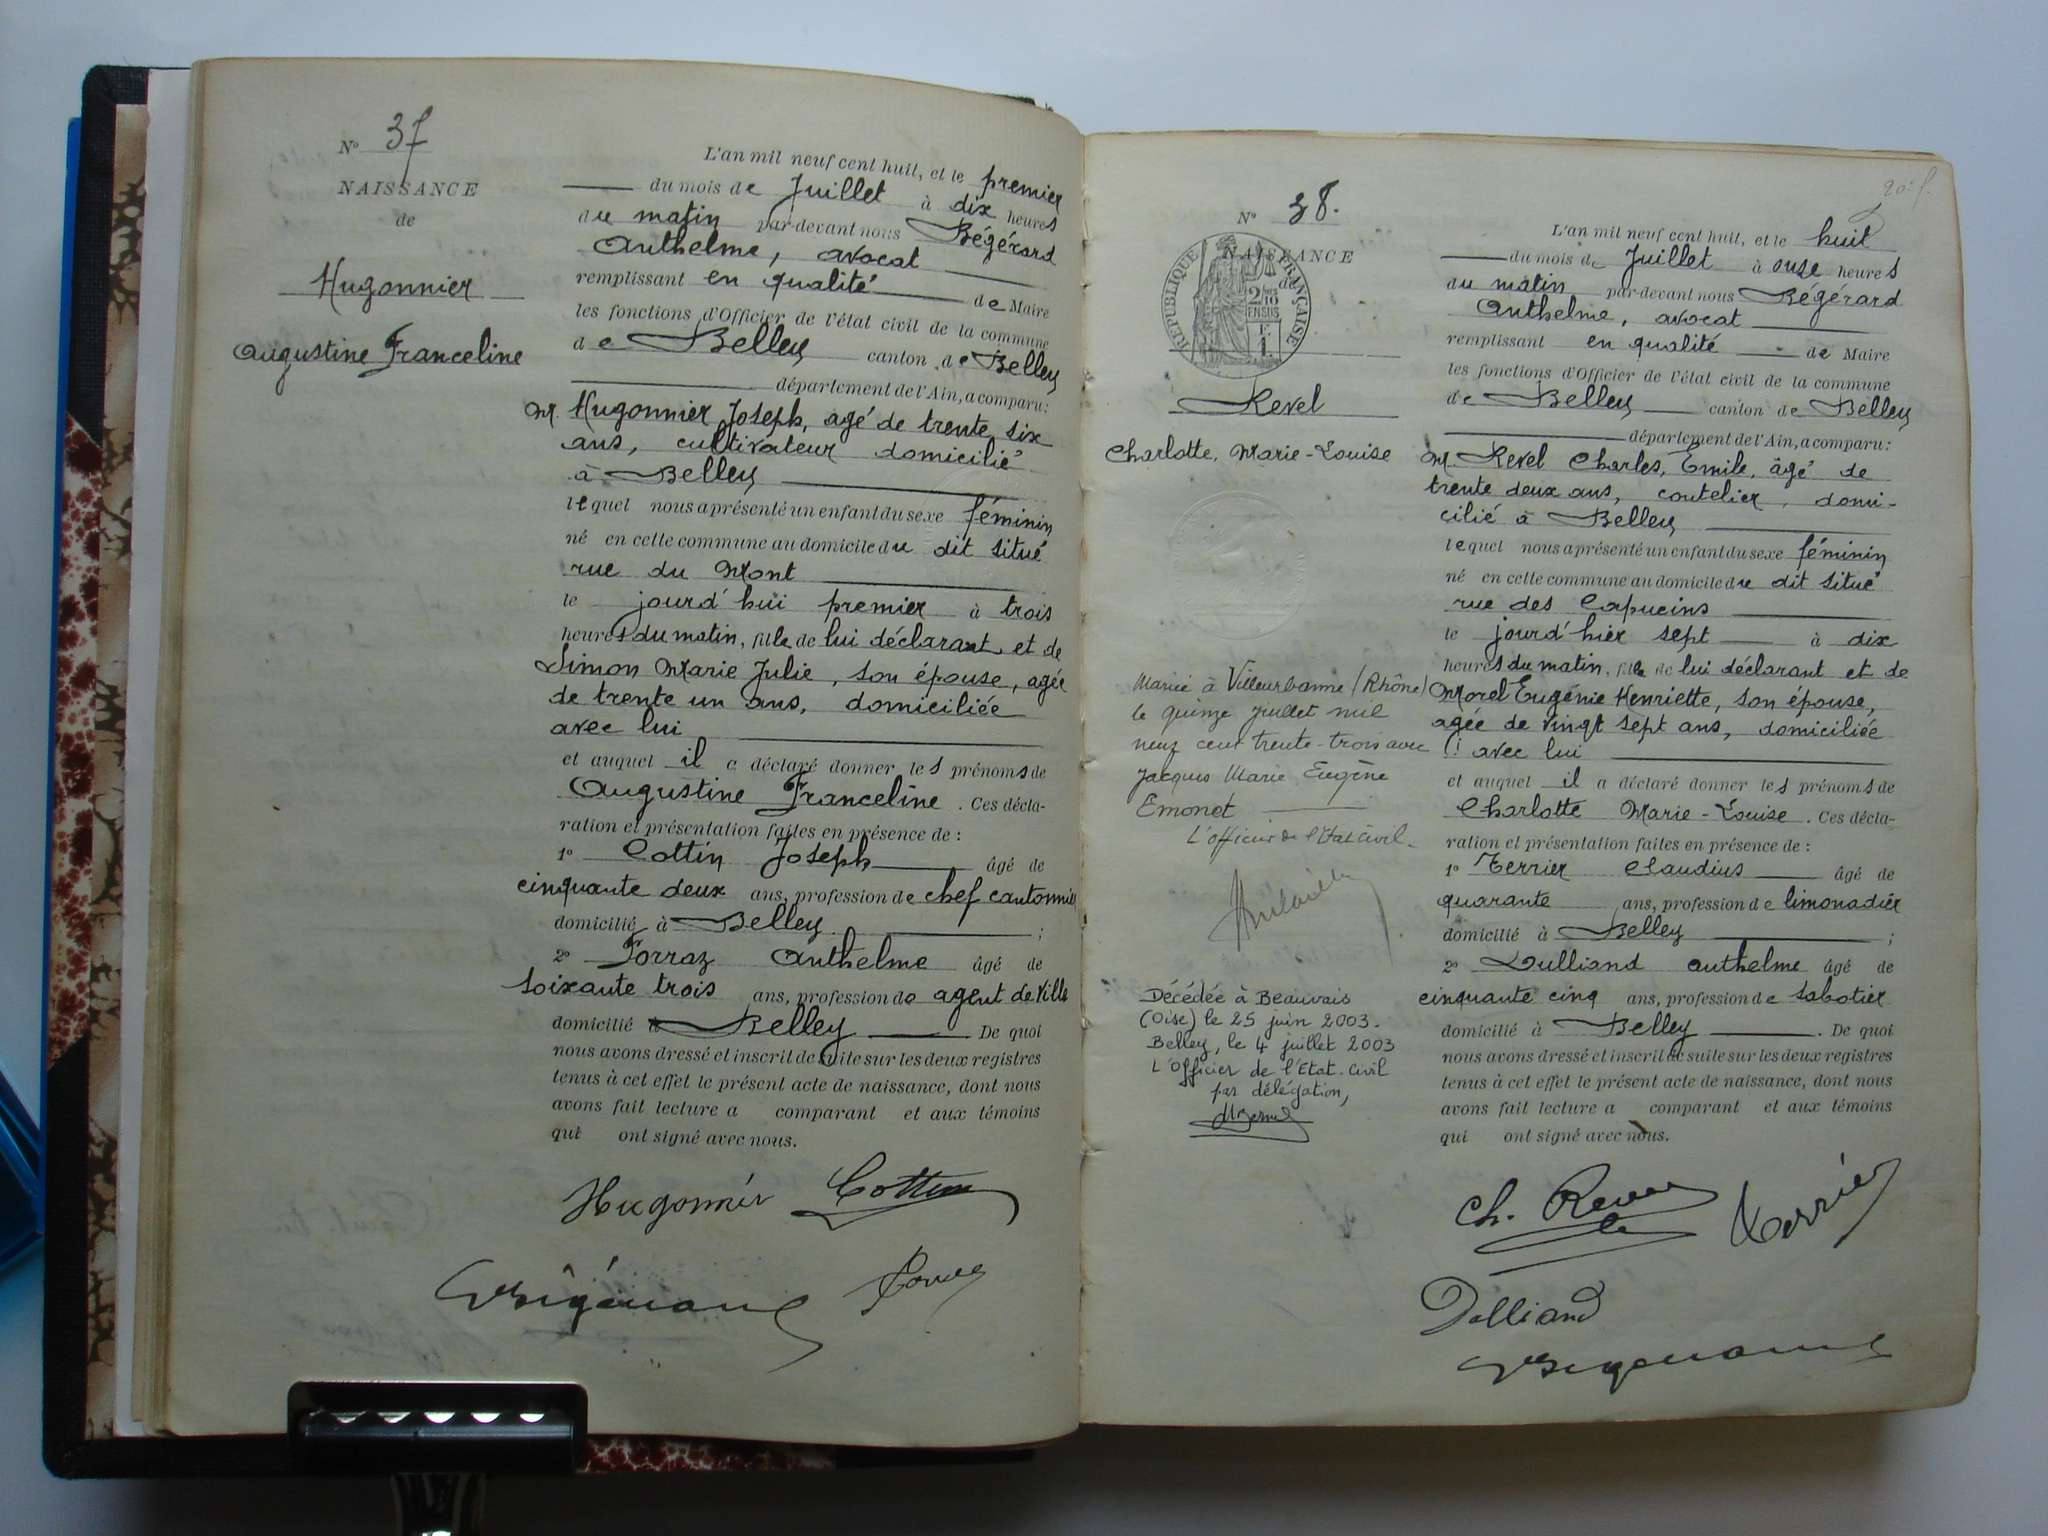 N° 37
NAISSANCE
de
Hugonnier
Augustine Franceline
L'an mil neuf cent huit, et le premier
du mois de Juillet à dix heures
du matin par-devant nous Bégérard
Anthelme, avocat
remplissant en qualité de Maire
les fonctions d'Officier de l'état civil de la commune
de Belley canton de Belley
département de l'Ain, a comparu:
M. Hugonnier Joseph, agé de trente six
ans, cultivateur domicilié
à Belley
lequel nous a présenté un enfant du sexe féminin
né en cette commune au domicile du dit situé
rue du Mont
le jourd'hui premier à trois
heures du matin, fille de lui déclarant et de
Simon Marie Julie, son épouse, agée
de trente un ans, domiciliée
avec lui
et auquel il a déclaré donner les prénoms de
Augustine Franceline. Ces décla-
ration et présentation faites en présence de :
1° Cottin Joseph âgé de
cinquante deux ans, profession de chef cantonnier
domicilié à Belley ;
2° Forraz Anthelme âgé de
soixante trois ans, profession de agent de Ville
domicilié à Belley De quoi
nous avons dressé et inscrit de suite sur les deux registres
tenus à cet effet le présent acte de naissance, dont nous
avons fait lecture a comparant et aux témoins
qui ont signé avec nous.
Hugonnier Cottin
Bégérard
N° 38.
NAISSANCE
de
RÉPUBLIQUE FRANÇAISE
2/10
EN SUS
F.
1.
Revel
Charlotte, Marie-Louise
Mariée à Villeurbanne (Rhône)
le quinze juillet mil
neuf cent trente-trois avec
Jacques Marie Eugène
Emonot
L'officier de l'Etat Civil.
Décédée à Beauvais
(Oise) le 25 juin 2003.
Belley, le 4 juillet 2003
L'Officier de l'Etat-Civil
par délégation,
L'an mil neuf cent huit, et le huit
du mois de Juillet à onze heures
du matin par-devant nous Bégérard
Anthelme, avocat
remplissant en qualité de Maire
les fonctions d'Officier de l'état civil de la commune
de Belley canton de Belley
département de l'Ain, a comparu:
M. Revel Charles, Émile, âgé de
trente deux ans, coutelier, domi-
cilié à Belley
lequel nous a présenté un enfant du sexe féminin
né en cette commune au domicile du dit situé
rue des Capucins
le jourd'hier sept à dix
heures du matin, fille de lui déclarant et de
Morel Eugénie Henriette, son épouse,
agée de vingt sept ans, domiciliée
avec lui
et auquel il a déclaré donner les prénoms de
Charlotte Marie-Louise. Ces décla-
ration et présentation faites en présence de :
1° Terrier Claudius âgé de
quarante ans, profession de limonadier
domicilié à Belley ;
2° Dulliand Anthelme âgé de
cinquante cinq ans, profession de sabotier
domicilié à Belley. De quoi
nous avons dressé et inscrit de suite sur les deux registres
tenus à cet effet le présent acte de naissance, dont nous
avons fait lecture a comparant et aux témoins
qui ont signé avec nous.
Ch. Revel Terrier
Dulliand
Bégérard